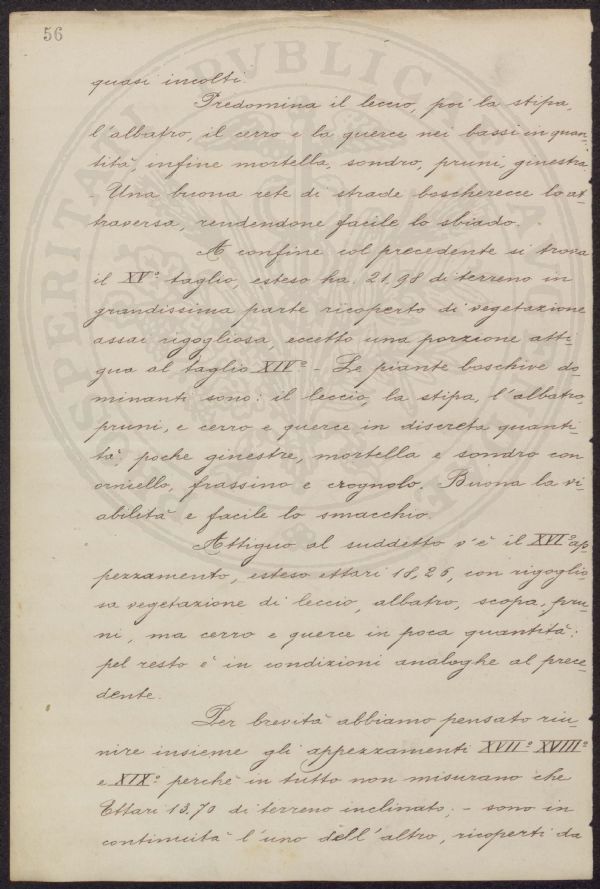 56
quasi incolti.
Predomina il leccio, poi la stipa,
l'albatro, il cerro e la querce nei bassi in quan-
tità, infine mortella, sondro, pruni, ginestra.
- Una buona rete di strade boscherecce lo at-
traversa, rendendone facile lo sbiado.
A confine col precedente si trova
il XV° taglio, esteso ha. 21,98 di terreno in
grandissima parte ricoperto di vegetazione
assai rigogliosa, eccetto una porzione atti-
gua al taglio XIV° - Le piante boschive do-
minanti sono: il leccio, la stipa, l'albatro,
pruni, e cerro e querce in discreta quanti-
tà, poche ginestre, mortella e sondro con
orniello, frassino e crognolo. Buona la vi-
abilità e facile lo smacchio.
Attiguo al suddetto v'è il XVI° ap-
pezzamento, esteso ettari 18,26, con rigoglio-
sa vegetazione di leccio, albatro, scopa, pru-
ni, ma cerro e querce in poca quantità;
pel resto è in condizioni analoghe al prece-
dente.
Per brevità abbiamo pensato riu-
nire insieme gli appezzamenti XVII° XVIII°
e XIX° perchè in tutto non misurano che
Ettari 13.70 di terreno inclinato; - sono in
continuità l'uno dell'altro, ricoperti da
PROSPERITATI PUBLICAE